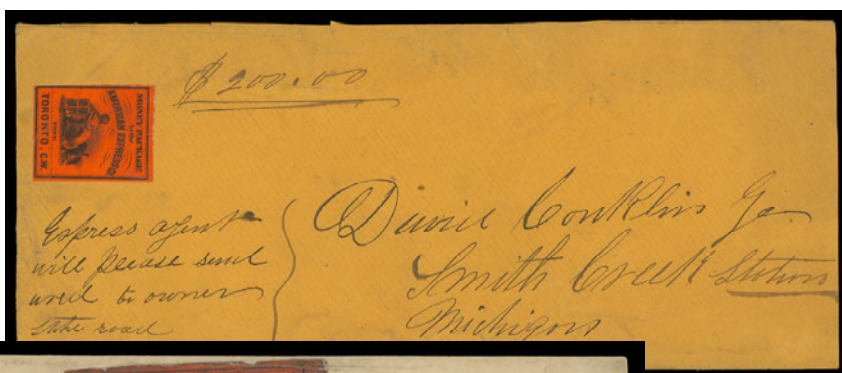 $200.00
MONEY PACKAGE
by the
AMERICAN EXPRESS Co
from
TORONTO, C.W.
Express agent
will please send
word to owner
State road
David Conklin
Smith Creek Station
Michigan